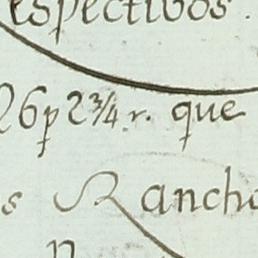 espectivos.
26p 2¾ r. que
s Rancho